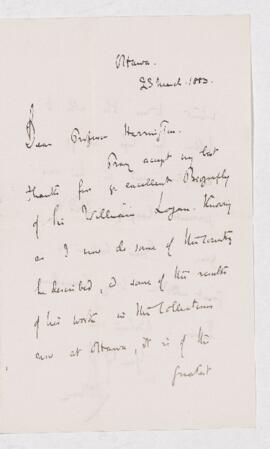 Ottawa.
23 March. 1883.
Dear Professor Harrington.
Pray accept my best
thanks for yr excellent Biography
of Sir William Logan. Knowing
as I now do some of the country
he described, & some of the results
of his work in the Collections
now at Ottawa, it is of the
greatest